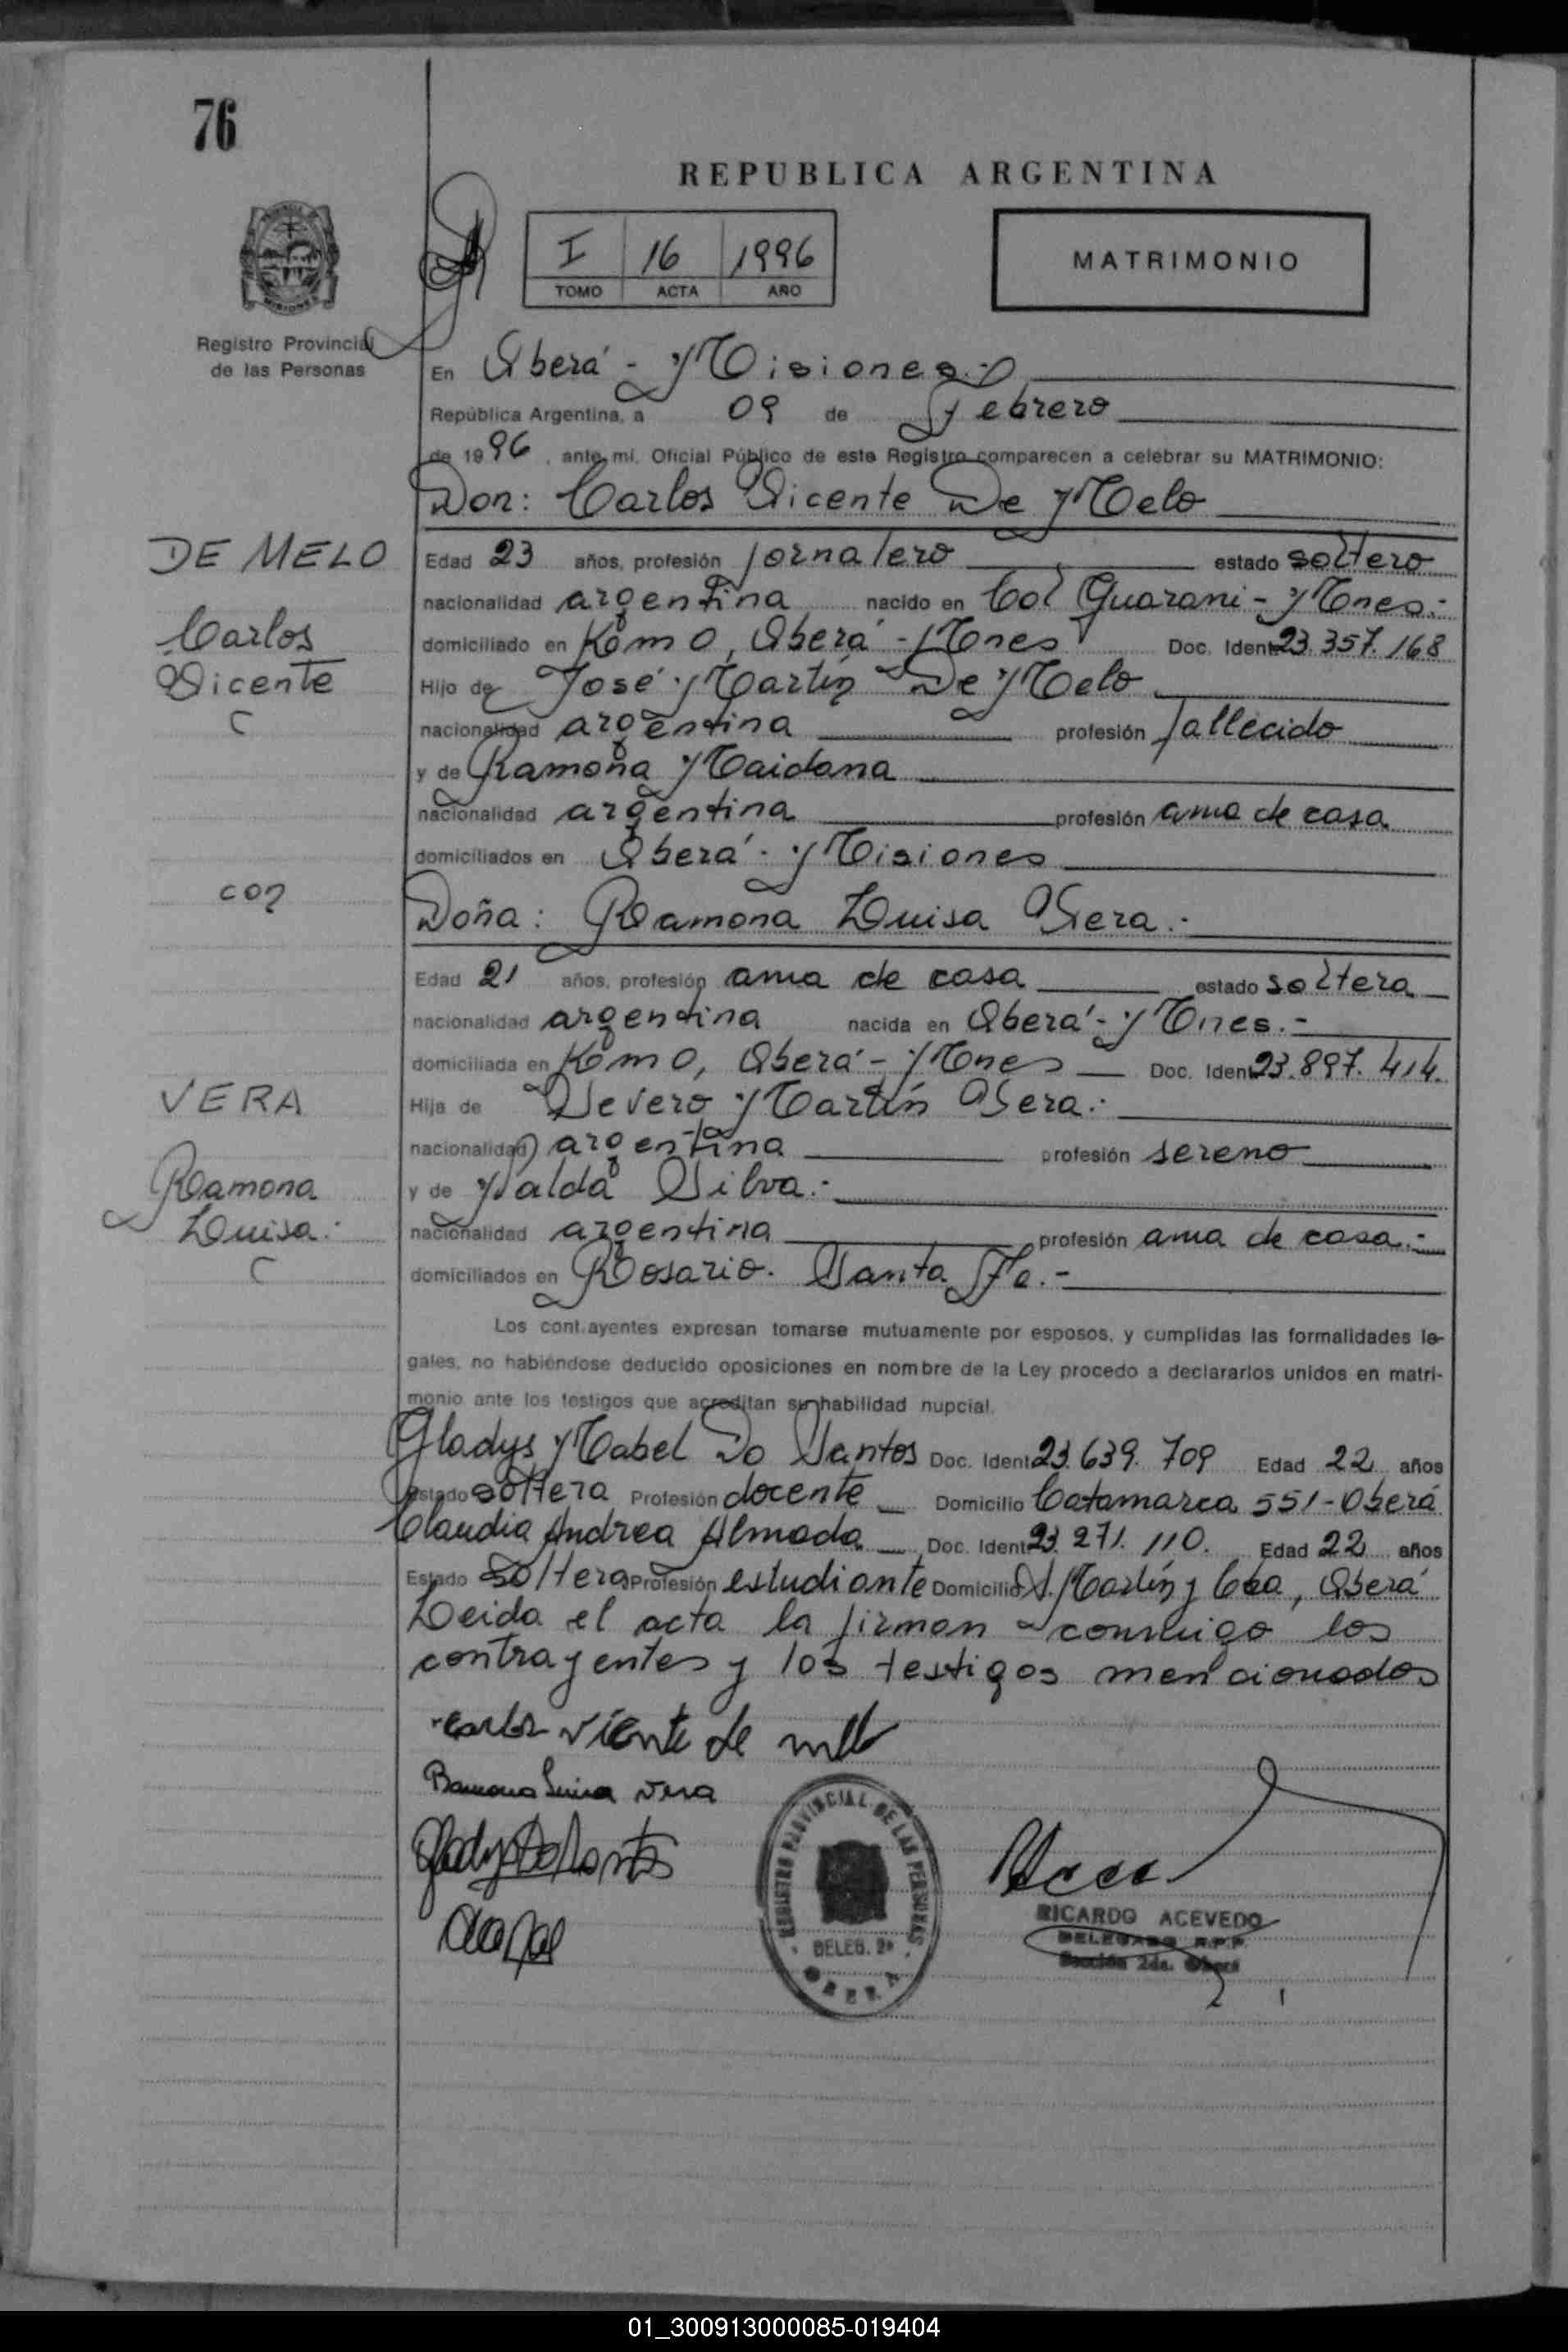 76
REPUBLICA ARGENTINA
I 16 1996
TOMO ACTA AÑO
MATRIMONIO
Registro Provincial
de las Personas
En Oberá - Misiones.-
República Argentina, a 09 de Febrero
de 1996, ante mi, Oficial Público de este Registro comparecen a celebrar su MATRIMONIO:
Don: Carlos Vicente De Melo
DE MELO
Carlos
Vicente
C
Edad 23 años, profesión jornalero estado soltero
nacionalidad argentina nacido en Col Guarani - Mnes.-
domiciliado en Km 0, Oberá - Mnes Doc. Ident. 23.357.168
Hijo de José Martín De Melo
nacionalidad argentina profesión fallecido
y de Ramona Maidana
nacionalidad argentina profesión ama de casa
domiciliados en Oberá - Misiones
con
Doña: Ramona Luisa Vera.-
Edad 21 años, profesión ama de casa estado soltera
nacionalidad argentina nacida en Oberá - Mnes.-
domiciliada en Km 0, Oberá - Mnes Doc. Ident. 23.897.414.
VERA
Ramona
Luisa.-
C
Hija de Severo Martín Vera.-
nacionalidad argentina profesión sereno
y de Nalda Silva.-
nacionalidad argentina profesión ama de casa.-
domiciliados en Rosario. Santa Fe.-
Los contrayentes expresan tomarse mutuamente por esposos, y cumplidas las formalidades le-
gales, no habiéndose deducido oposiciones en nombre de la Ley procedo a declararlos unidos en matri-
monio ante los testigos que acreditan su habilidad nupcial.
Gladys Mabel Do Santos Doc. Ident. 23.639.709 Edad 22 años
Estado soltera Profesión docente Domicilio Catamarca 551 - Oberá
Claudia Andrea Almada Doc. Ident. 23.271.110. Edad 22 años
Estado soltera Profesión estudiante Domicilio S. Martín y Cba, Oberá
Leida el acta la firman conmigo los
contrayentes y los testigos mencionados
Carlos vicente de melo
Ramona Luisa Vera
Gladys Do Santos
REGISTRO PROVINCIAL DE LAS PERSONAS
DELEG. 2a
OBERA
RICARDO ACEVEDO
DELEGADO R.P.P.
Sección 2da. Oberá
01_300913000085-019404